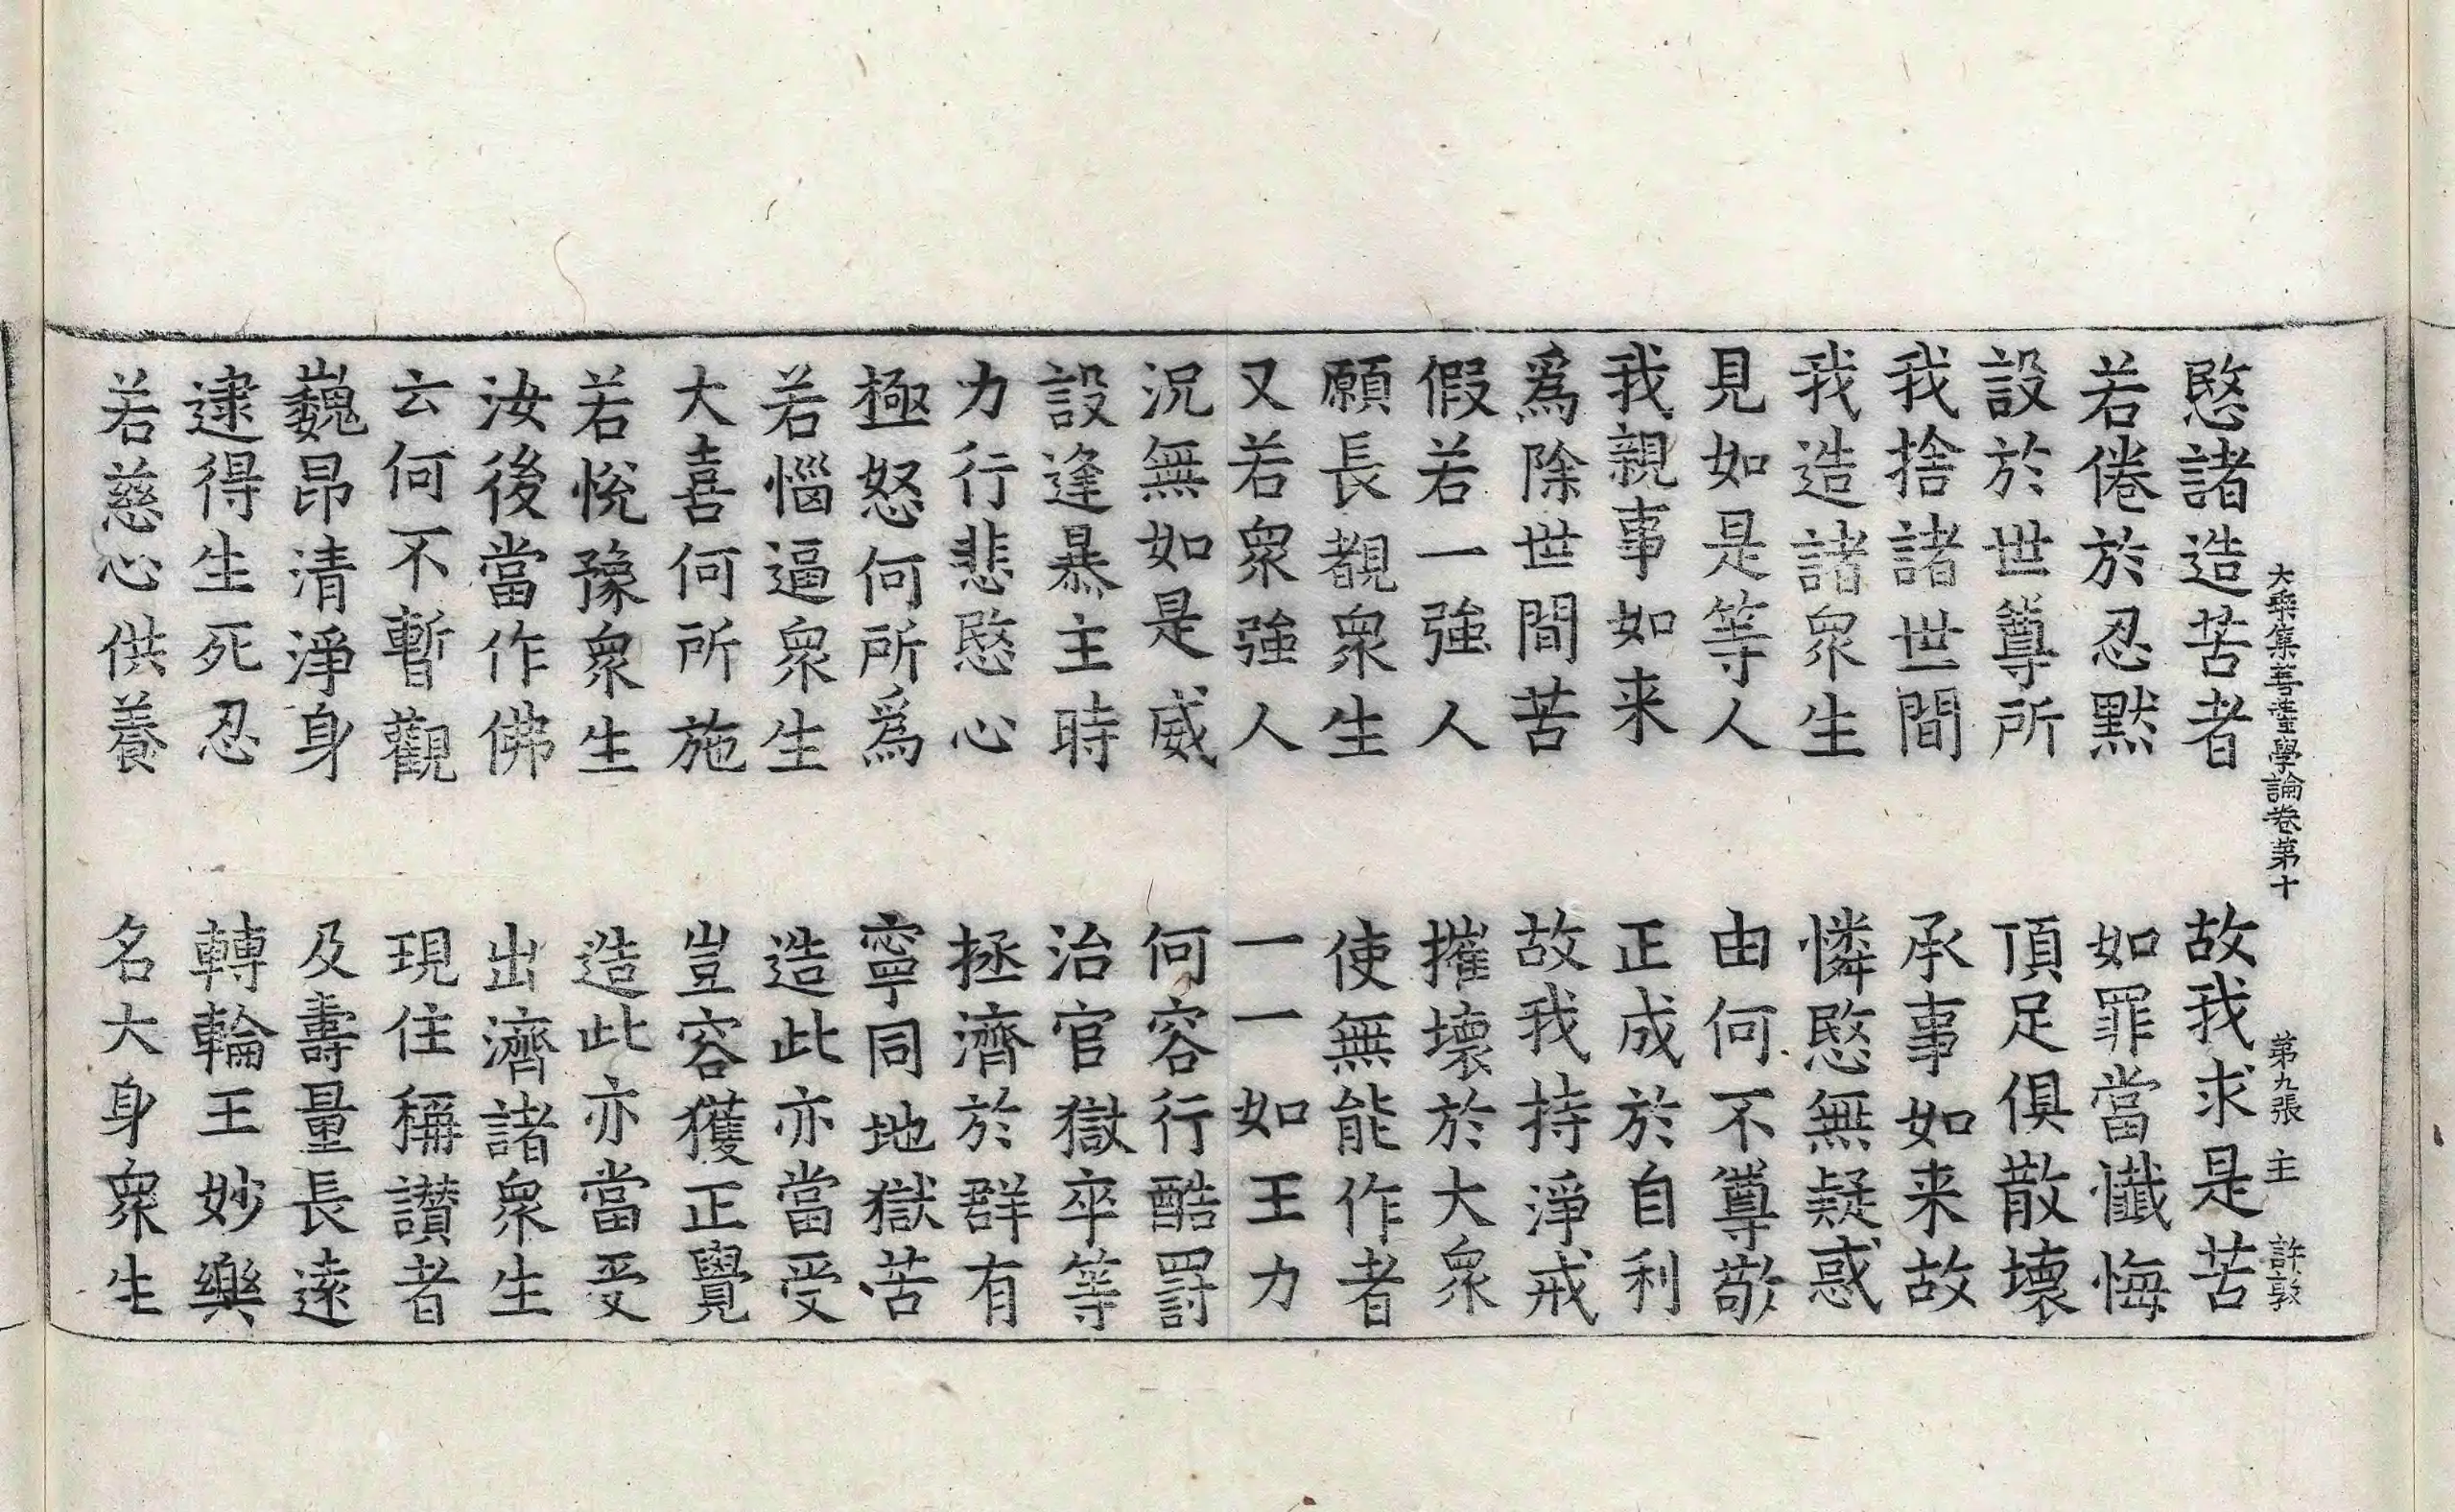 大乘集菩薩學論卷第十　第九張　主　許敦
愍諸造苦者　故我求是苦
若倦於忍默　如罪當懺悔
設於世尊所　頂足俱散壞
我捨諸世間　承事如来故
我造諸衆生　憐愍無疑惑
見如是等人　由何不尊敬
我親事如来　正成於自利
爲除世間苦　故我持淨戒
假若一強人　摧壞於大衆
願長覩衆生　使無能作者
又若衆強人　一一如王力
況無如是威　何容行酷罰
設逢暴主時　治官獄卒等
力行悲愍心　拯濟於群有
極怒何所爲　寧同地獄苦
若惱逼衆生　造此亦當受
大喜何所施　豈容獲正覺
若悅豫衆生　造此亦當受
汝後當作佛　出濟諸衆生
云何不暫觀　現住稱讃者
巍昂清淨身　及壽量長遠
逮得生死忍　轉輪王妙樂
若慈心供養　名大身衆生